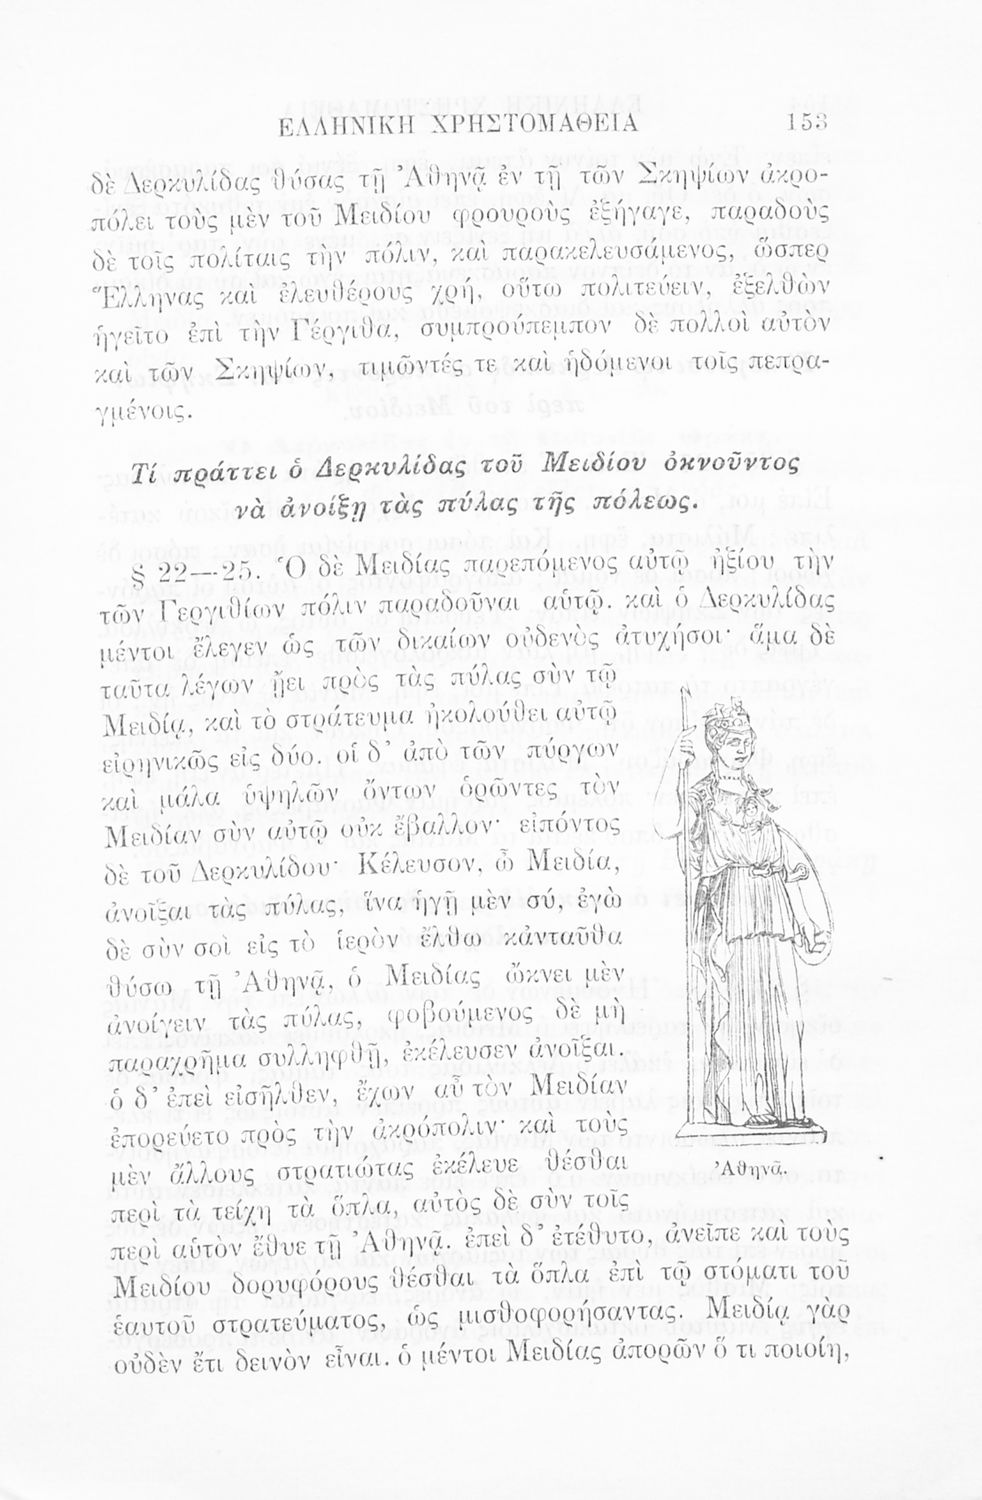 ΕΛΛΗΝΙΚΗ ΧΡΗΣΤΟΜΑΘΕΙΑ 153
δὲ Δερκυλίδας θύσας τῇ Ἀθηνᾷ ἐν τῇ τῶν Σκηψίων ἀκρο-
πόλει τοὺς μὲν τοῦ Μειδίου φρουροὺς ἐξήγαγε, παραδοὺς
δὲ τοῖς πολίταις τὴν πόλιν, καὶ παρακελευσάμενος, ὥσπερ
Ἕλληνας καὶ ἐλευθέρους χρή, οὕτω πολιτεύειν, ἐξελθὼν
ἡγεῖτο ἐπὶ τὴν Γέργιθα, συμπρούπεμπον δὲ πολλοὶ αὐτὸν
καὶ τῶν Σκηψίων, τιμῶντές τε καὶ ἡδόμενοι τοῖς πεπρα-
γμένοις.
Τί πράττει ὁ Δερκυλίδας τοῦ Μειδίου ὀκνοῦντος
νὰ ἀνοίξῃ τὰς πύλας τῆς πόλεως.
§ 22—25. Ὁ δὲ Μειδίας παρεπόμενος αὐτῷ ἠξίου τὴν
τῶν Γεργιθίων πόλιν παραδοῦναι αὑτῷ. καὶ ὁ Δερκυλίδας
μέντοι ἔλεγεν ὡς τῶν δικαίων οὐδενὸς ἀτυχήσοι· ἅμα δὲ
ταῦτα λέγων ᾔει πρὸς τὰς πύλας σὺν τῷ
Μειδίᾳ, καὶ τὸ στράτευμα ἠκολούθει αὐτῷ
εἰρηνικῶς εἰς δύο. οἱ δ’ ἀπὸ τῶν πύργων
καὶ μάλα ὑψηλῶν ὄντων ὁρῶντες τὸν
Μειδίαν σὺν αὐτῷ οὐκ ἔβαλλον· εἰπόντος
δὲ τοῦ Δερκυλίδου· Κέλευσον, ὦ Μειδία,
ἀνοῖξαι τὰς πύλας, ἵνα ἡγῇ μὲν σύ, ἐγὼ
δὲ σὺν σοὶ εἰς τὸ ἱερὸν ἔλθω κἀνταῦθα
θύσω τῇ Ἀθηνᾷ, ὁ Μειδίας ὤκνει μὲν
ἀνοίγειν τὰς πύλας, φοβούμενος δὲ μὴ
παραχρῆμα συλληφθῇ, ἐκέλευσεν ἀνοῖξαι.
ὁ δ’ ἐπεὶ εἰσῆλθεν, ἔχων αὖ τὸν Μειδίαν
ἐπορεύετο πρὸς τὴν ἀκρόπολιν· καὶ τοὺς
μὲν ἄλλους στρατιώτας ἐκέλευε θέσθαι
περὶ τὰ τείχη τὰ ὅπλα, αὐτὸς δὲ σὺν τοῖς
περὶ αὑτὸν ἔθυε τῇ Ἀθηνᾷ. ἐπεὶ δ’ ἐτέθυτο, ἀνεῖπε καὶ τοὺς
Μειδίου δορυφόρους θέσθαι τὰ ὅπλα ἐπὶ τῷ στόματι τοῦ
ἑαυτοῦ στρατεύματος, ὡς μισθοφορήσαντας. Μειδίᾳ γὰρ
οὐδὲν ἔτι δεινὸν εἶναι. ὁ μέντοι Μειδίας ἀπορῶν ὅ τι ποιοίη,
Ἀθηνᾶ.